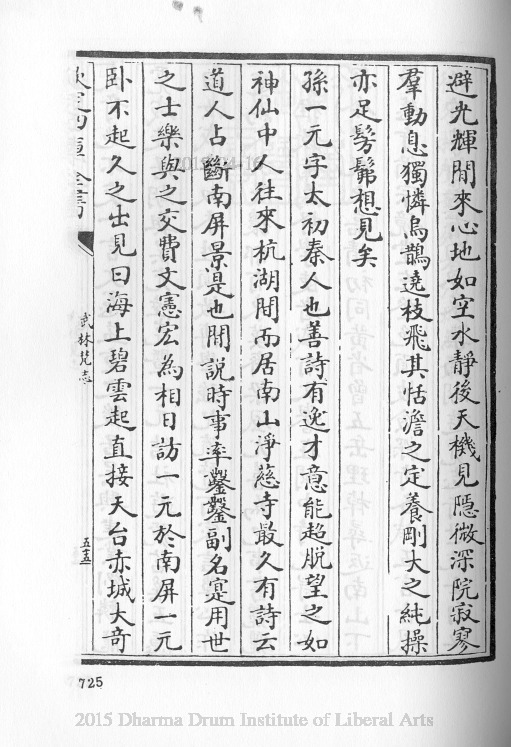 避光輝閒來心地如空水靜後天機見隱微深院寂寥
羣動息獨憐烏鵲遶枝飛其恬澹之定養剛大之純操
亦足髣髴想見矣
孫一元字太初秦人也善詩有逸才意能超脱望之如
神仙中人往來杭湖間而居南山淨慈寺最久有詩云
道人占斷南屏景是也間説時事率鑿鑿副名寔用世
之士樂與之交費文憲宏為相日訪一元於南屏一元
卧不起久之出見曰海上碧雲起直接天台赤城大奇
欽定四庫全書
武林梵志
五十五
725
2015 Dharma Drum Institute of Liberal Arts